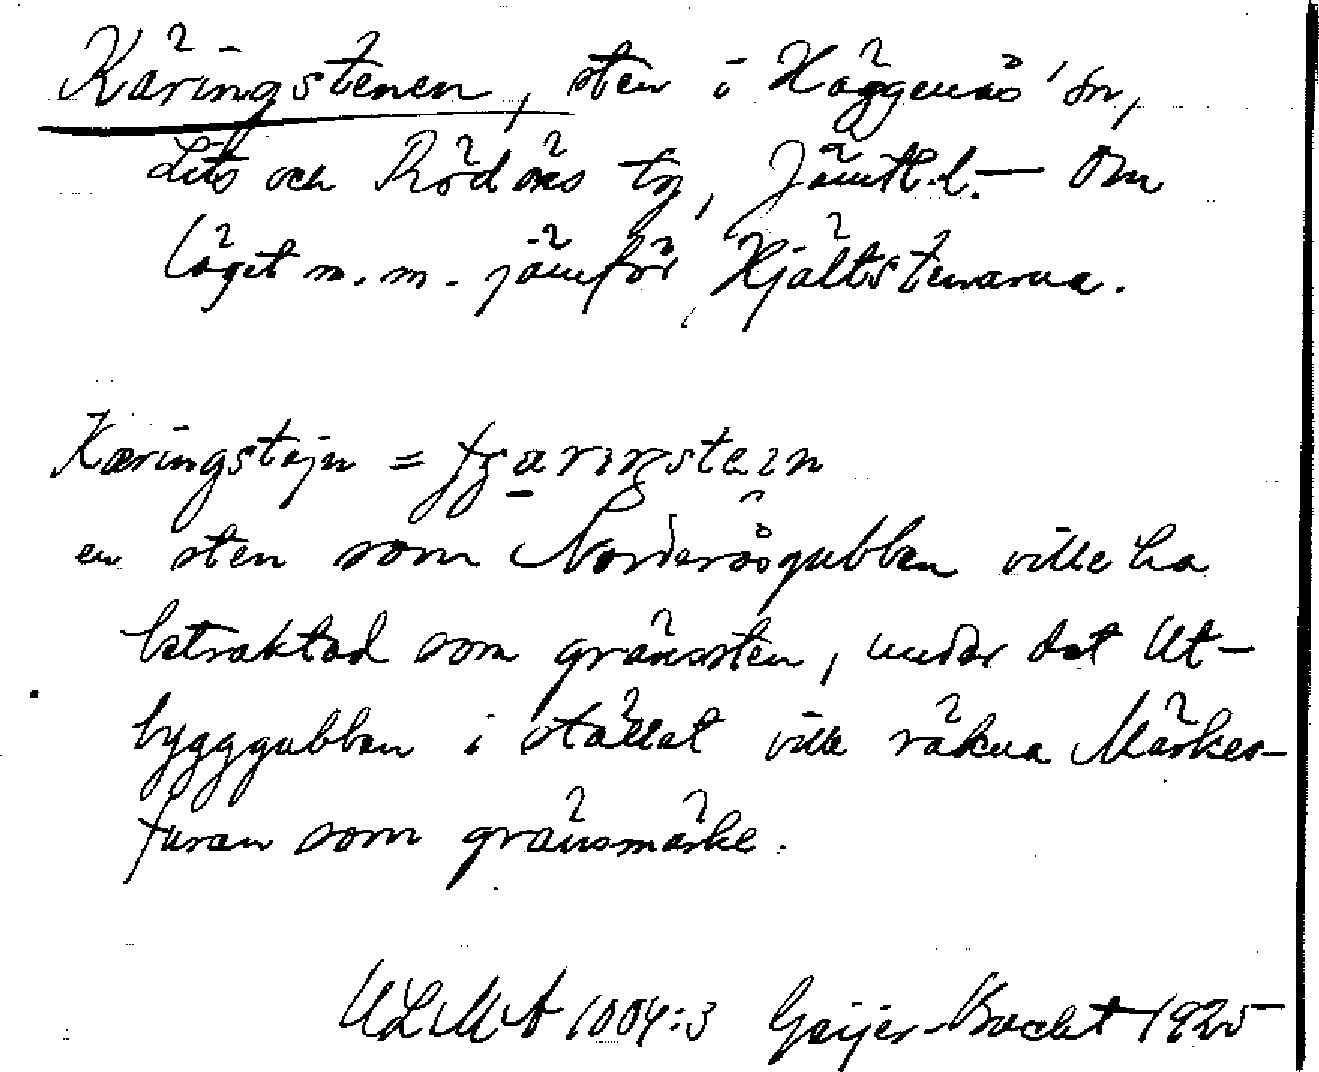 Käringstenen, sten i Häggenås sn,
Lits och Rödöns tg, Jämtl.l. – Om
läget m.m. jämför Hjältstenarna.
Kæringstejn =
en sten som Norderåsgubben ville ha
betraktad som gränssten, under det Ut-
bygggubben i stället ville räkna Märkes-
furan som gränsmärke.
ULMA 1004:3 Geijer-Bucht 1925